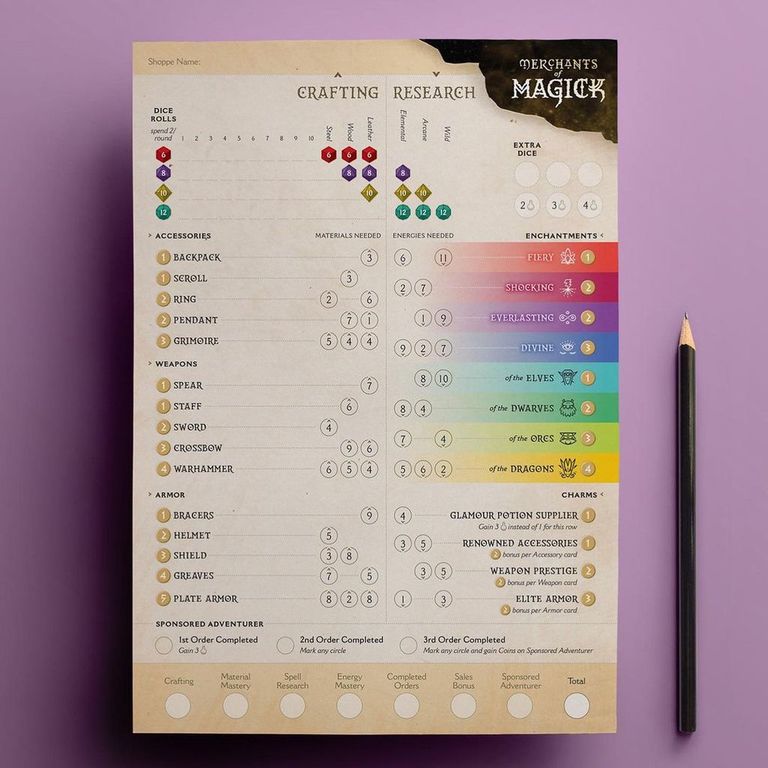 Shoppe Name:
MERCHANTS
of
MAGICK
CRAFTING RESEARCH
DICE
ROLLS
spend 2/
round
1 2 3 4 5 6 7 8 9 10
Steel Wood Leather
Elemental Arcane Wild
EXTRA
DICE
6 6 6 6
8 8 8
10 10 10 10
12 12 12 12
2 3 4
ACCESSORIES MATERIALS NEEDED ENERGIES NEEDED ENCHANTMENTS
1 BACKPACK 3 6 11 FIERY 1
1 SCROLL 3
2 7 SHOCKING 2
2 RING 2 6
2 PENDANT 7 1 1 9 EVERLASTING 2
3 GRIMOIRE 5 4 4 9 2 7 DIVINE 3
WEAPONS
1 SPEAR 7 8 10 of the ELVES 1
1 STAFF 6 8 4 of the DWARVES 2
2 SWORD 4
3 CROSSBOW 9 6 7 4 of the ORCS 3
4 WARHAMMER 6 5 4 5 6 2 of the DRAGONS 4
ARMOR CHARMS
1 BRACERS 9 4 GLAMOUR POTION SUPPLIER 1
Gain 3 instead of 1 for this row
2 HELMET 5
3 5 RENOWNED ACCESSORIES 1
2 bonus per Accessory card
3 SHIELD 3 8
4 GREAVES 7 5 3 5 WEAPON PRESTIGE 2
2 bonus per Weapon card
5 PLATE ARMOR 8 2 8 1 3 ELITE ARMOR 3
2 bonus per Armor card
SPONSORED ADVENTURER
1st Order Completed 2nd Order Completed 3rd Order Completed
Gain 3 Mark any circle Mark any circle and gain Coins on Sponsored Adventurer
Crafting Material Mastery Spell Research Energy Mastery Completed Orders Sales Bonus Sponsored Adventurer Total